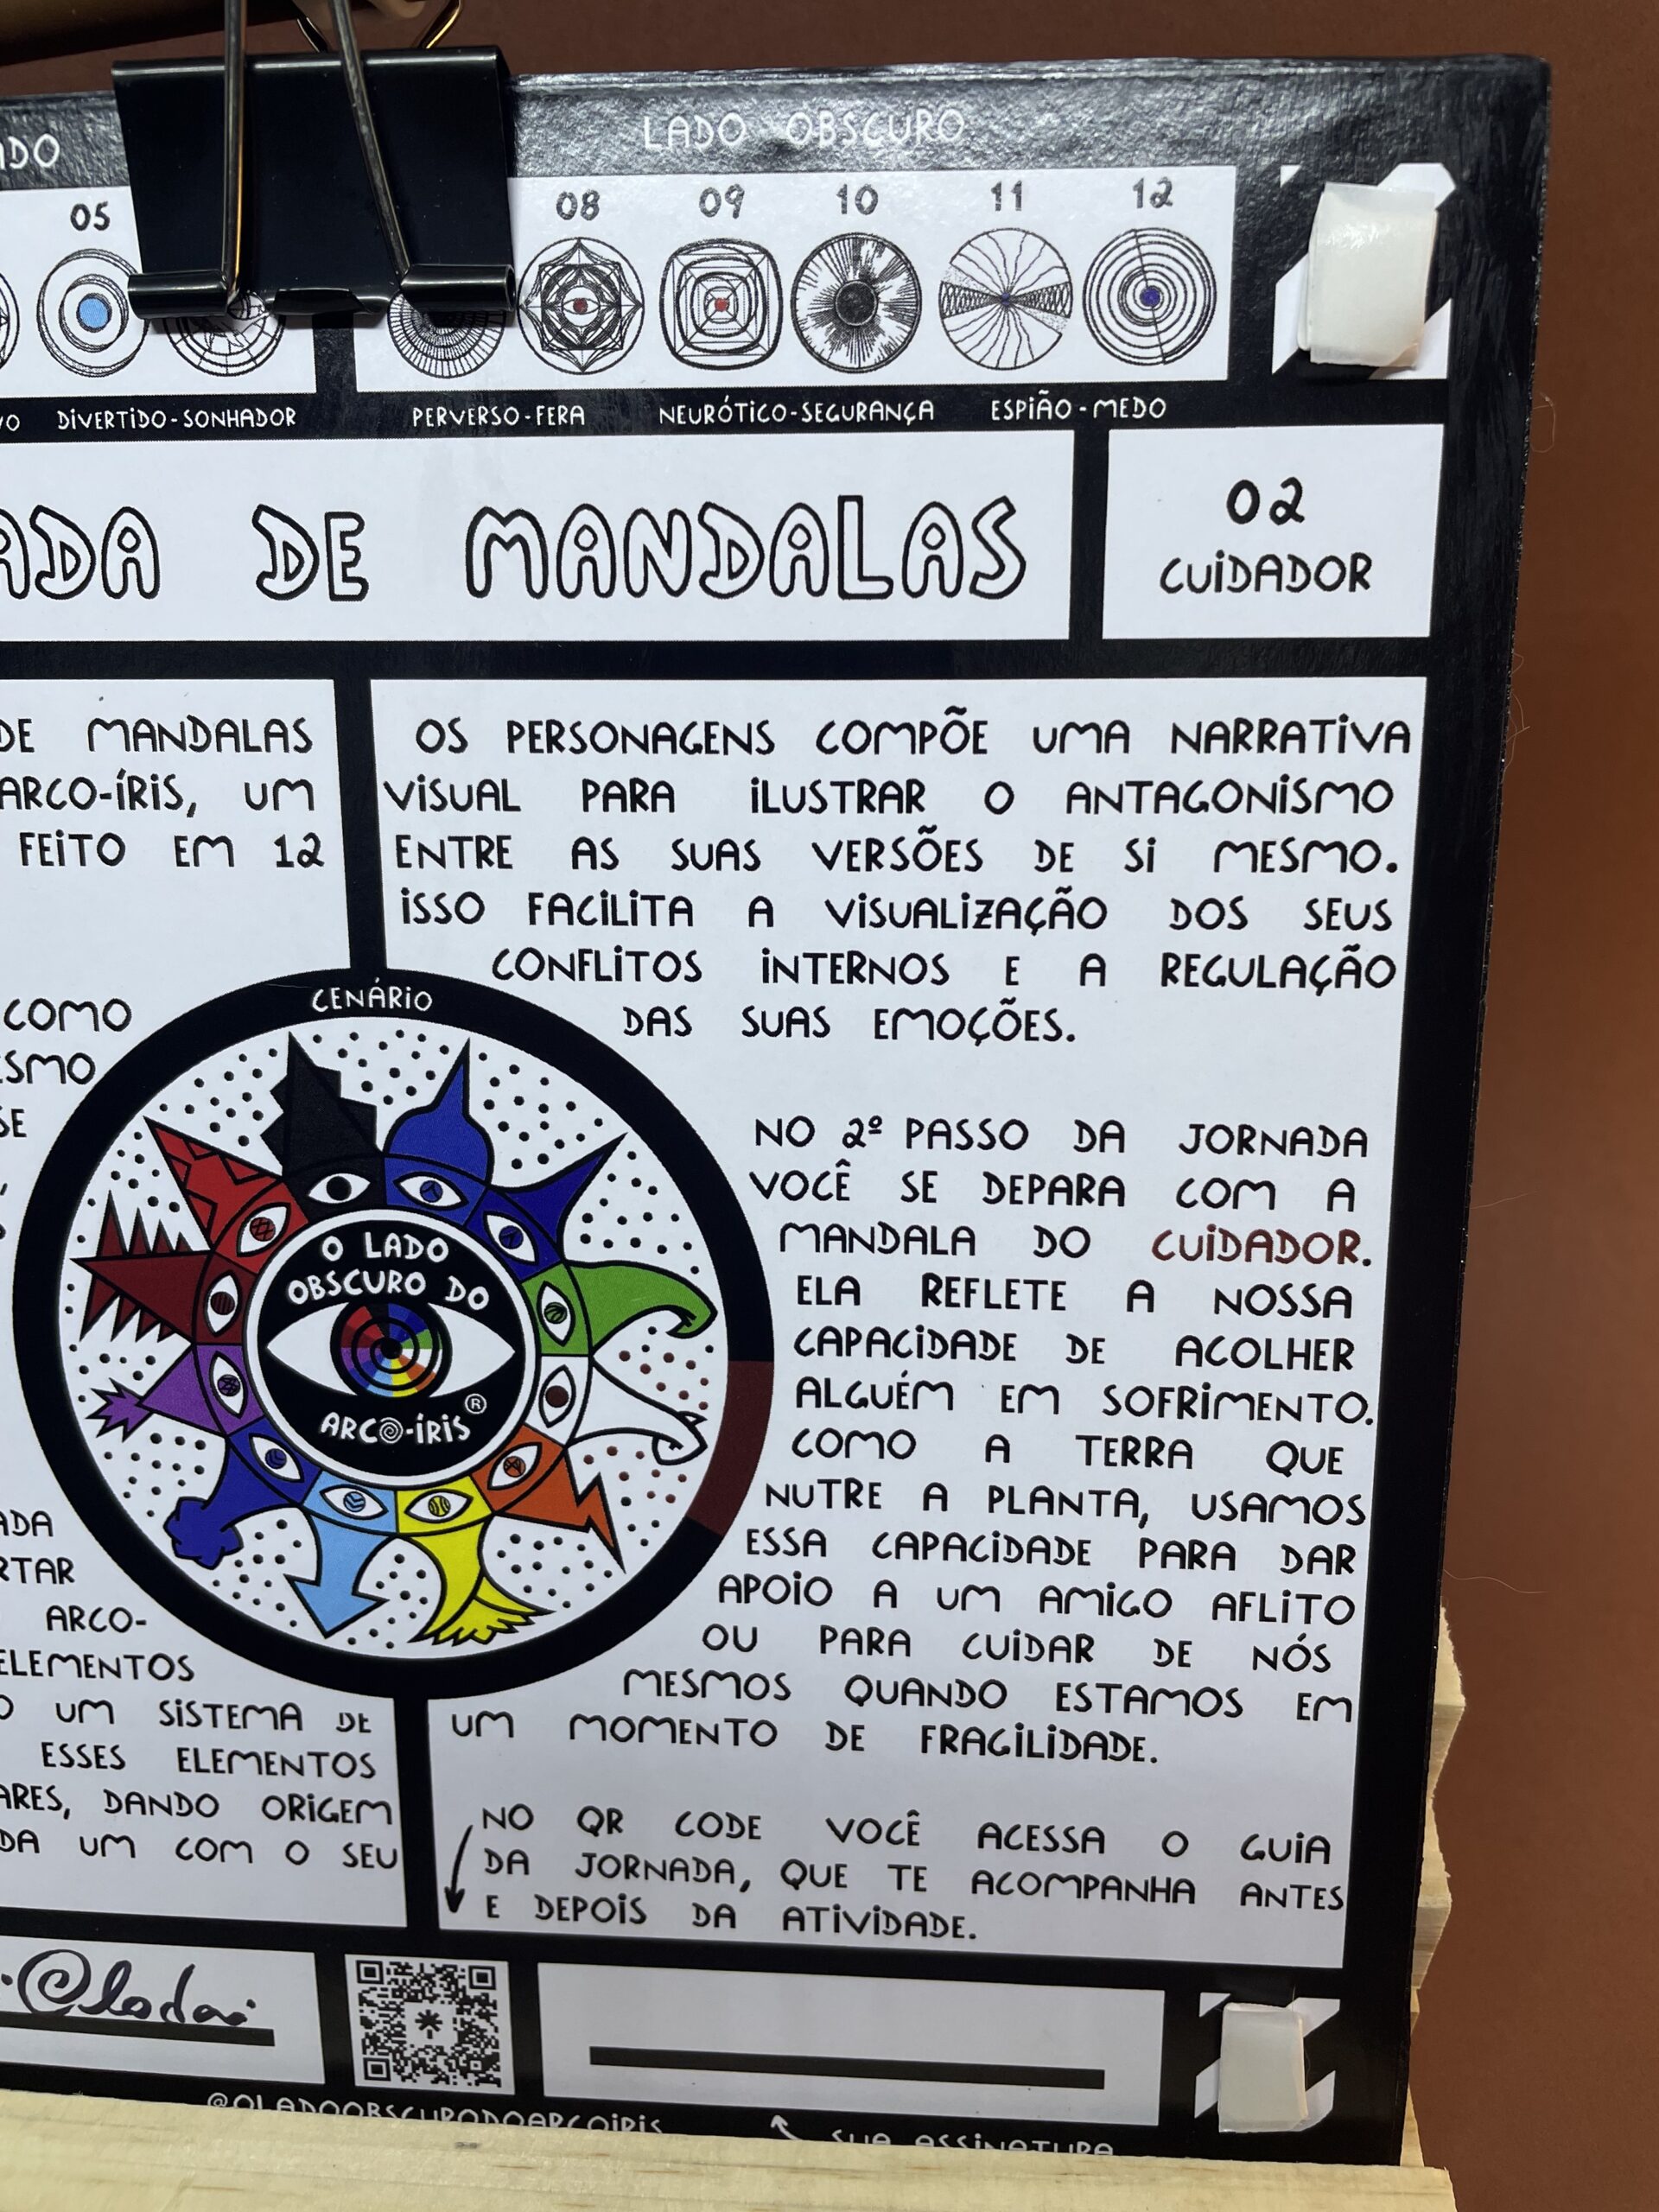 LADO OBSCURO
05
08 09 10 11 12
DIVERTIDO-SONHADOR
PERVERSO-FERA NEURÓTICO-SEGURANÇA ESPIÃO-MEDO
DE MANDALAS
02
CUIDADOR
DE MANDALAS
ARCO-ÍRIS, UM
FEITO EM 12
COMO
ARCO-
ELEMENTOS
UM SISTEMA DE
ESSES ELEMENTOS
DANDO ORIGEM
UM COM O SEU
OS PERSONAGENS COMPÕE UMA NARRATIVA
VISUAL PARA ILUSTRAR O ANTAGONISMO
ENTRE AS SUAS VERSÕES DE SI MESMO.
ISSO FACILITA A VISUALIZAÇÃO DOS SEUS
CONFLITOS INTERNOS E A REGULAÇÃO
DAS SUAS EMOÇÕES.
CENÁRIO
O LADO
OBSCURO DO
ARCO-ÍRIS®
NO 2º PASSO DA JORNADA
VOCÊ SE DEPARA COM A
MANDALA DO CUIDADOR.
ELA REFLETE A NOSSA
CAPACIDADE DE ACOLHER
ALGUÉM EM SOFRIMENTO.
COMO A TERRA QUE
NUTRE A PLANTA, USAMOS
ESSA CAPACIDADE PARA DAR
APOIO A UM AMIGO AFLITO
OU PARA CUIDAR DE NÓS
MESMOS QUANDO ESTAMOS EM
UM MOMENTO DE FRAGILIDADE.
NO QR CODE VOCÊ ACESSA O GUIA
DA JORNADA, QUE TE ACOMPANHA ANTES
E DEPOIS DA ATIVIDADE.
@OLADOOBSCURODOARCOIRIS
SUA ASSINATURA